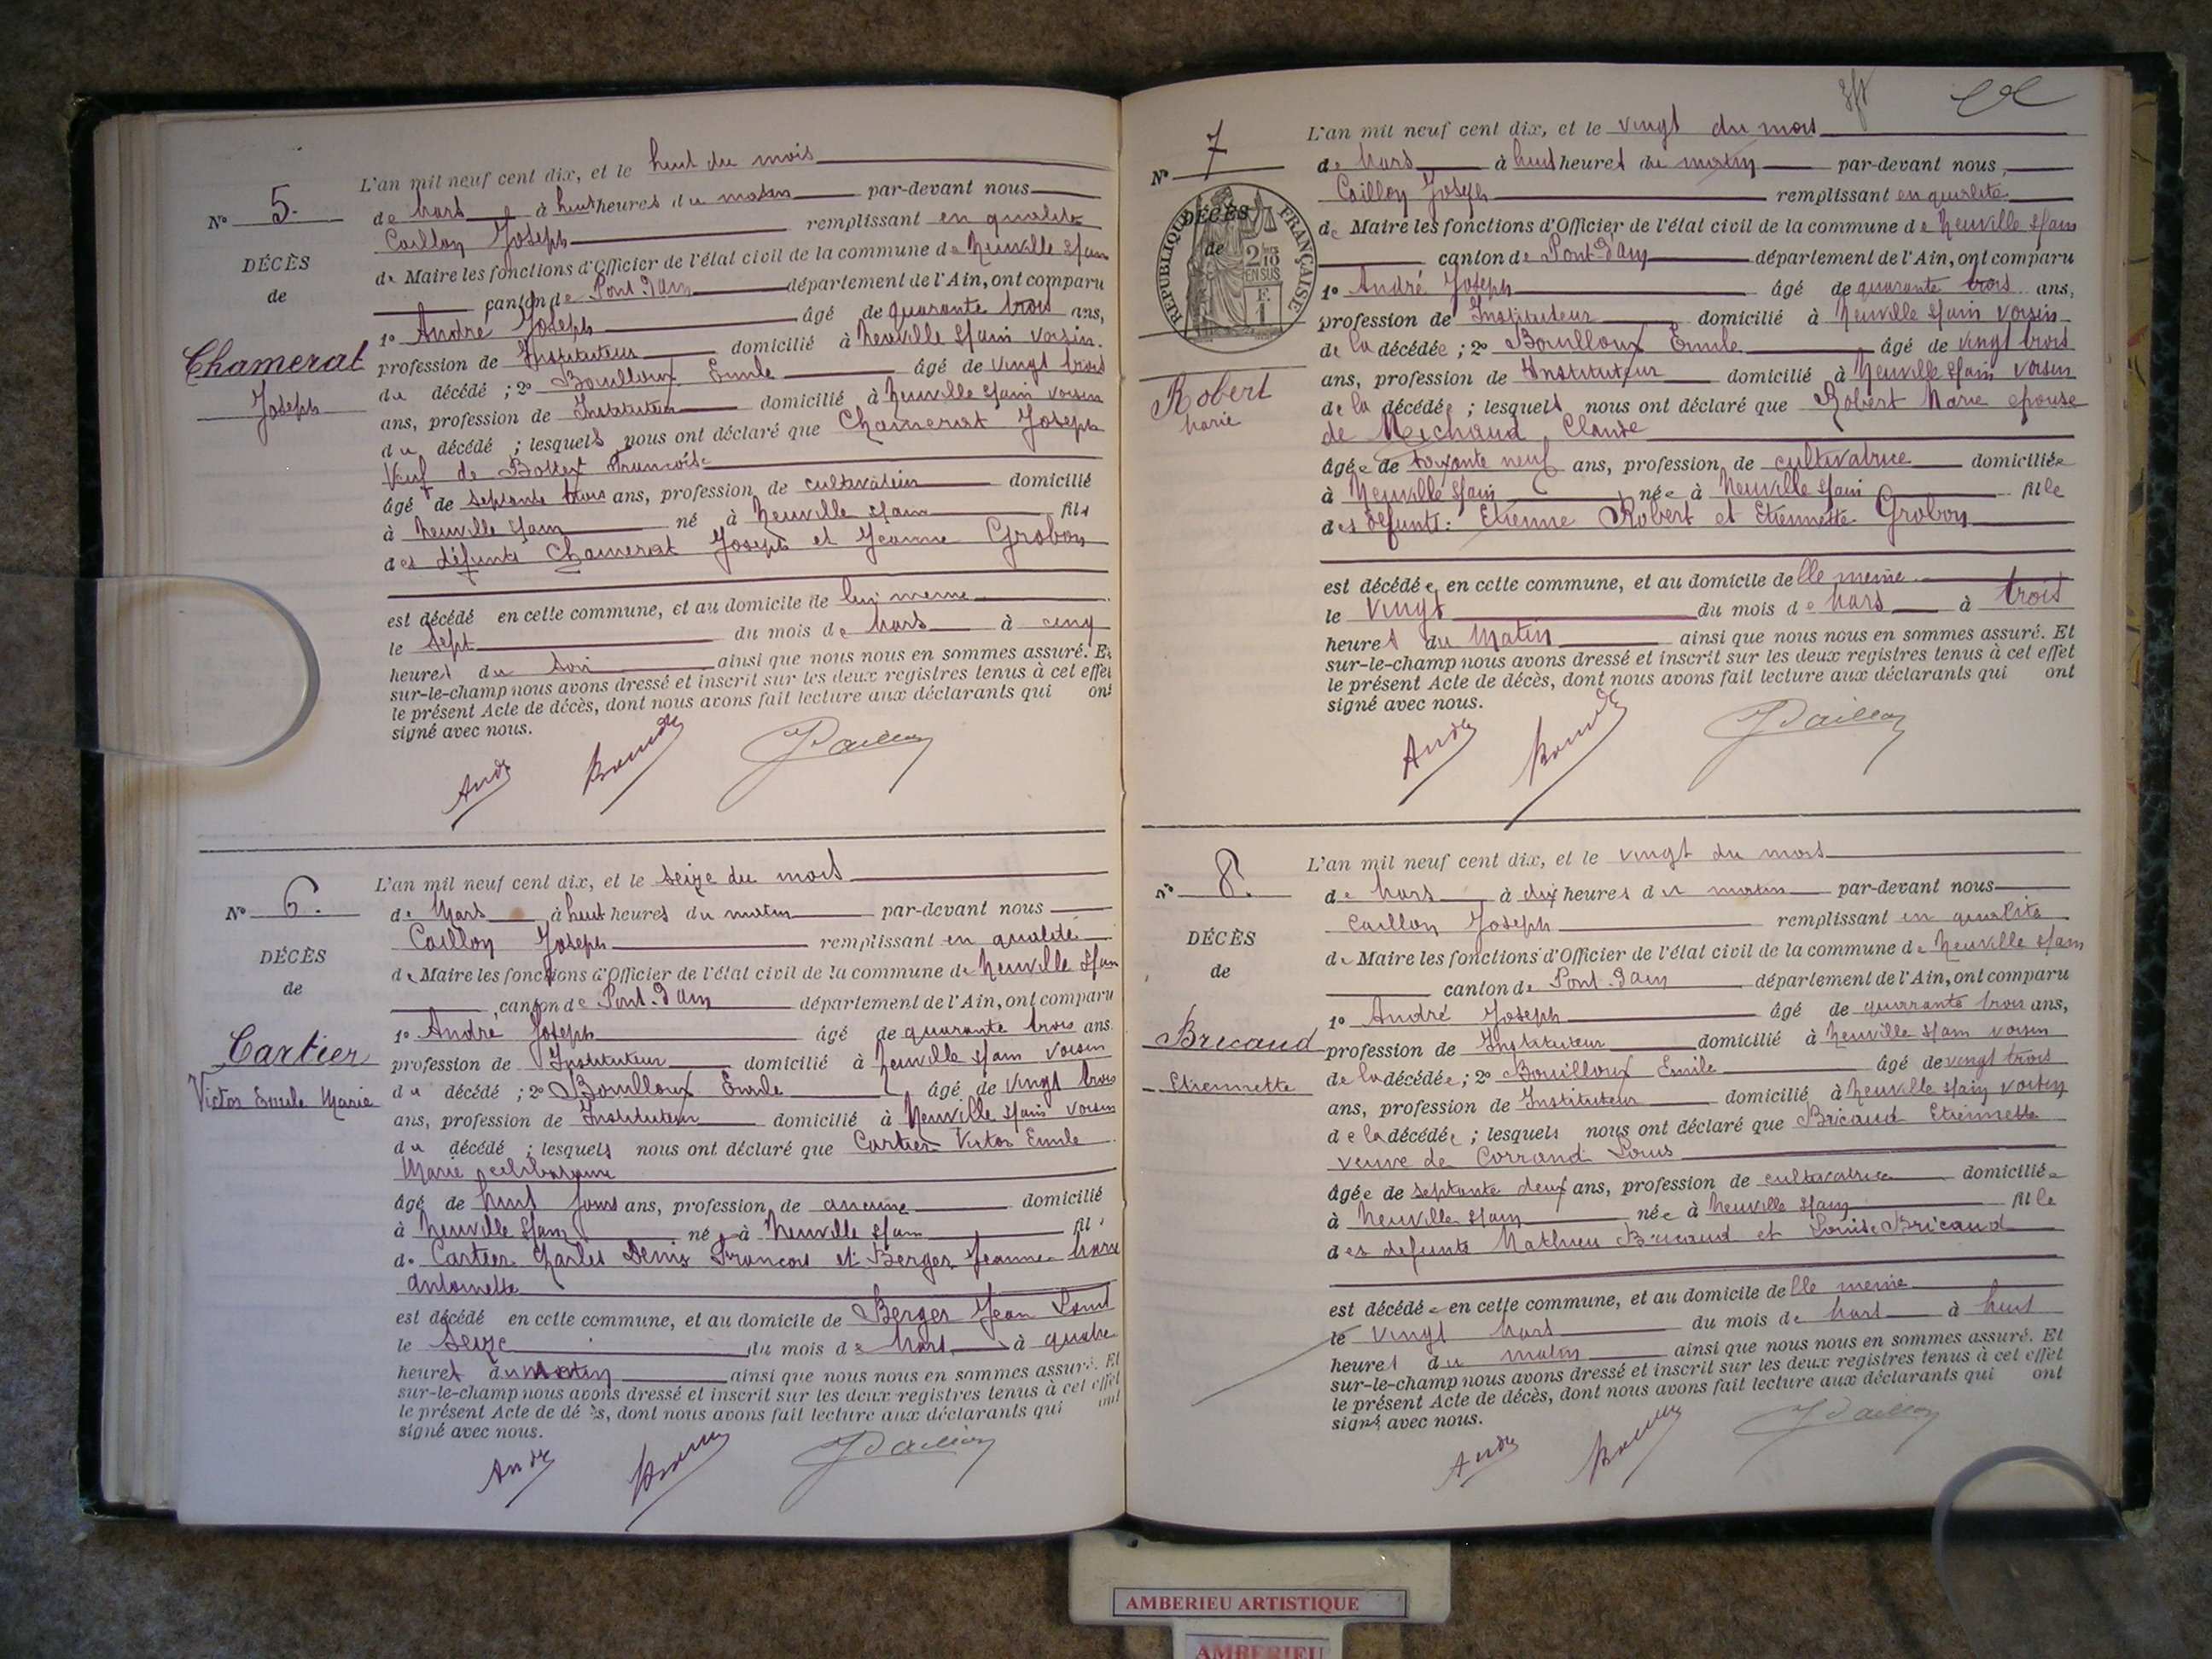 N° 5.
DÉCÈS
de
Chamerat
Joseph
L'an mil neuf cent dix, et le huit du mois
de Mars à huit heures du matin par-devant nous
Caillon Joseph remplissant en qualité
de Maire les fonctions d'Officier de l'état civil de la commune de Neuville s/ain
canton de Pont d'ain département de l'Ain, ont comparu
1° André Joseph âgé de quarante trois ans,
profession de Instituteur domicilié à Neuville s/ain voisin
du décédé ; 2° Bouilloux Emile âgé de vingt trois
ans, profession de Instituteur domicilié à Neuville s/ain voisin
du décédé ; lesquels nous ont déclaré que Chamerat Joseph
Veuf de Bottex Francoise
âgé de septante trois ans, profession de cultivateur domicilié
à Neuville s/ain né à Neuville s/ain fils
des défunts Chamerat Joseph et Jeanne Grobon
est décédé en cette commune, et au domicile de lui meme
le sept du mois de Mars à cinq
heures du soir ainsi que nous nous en sommes assuré. Et
sur-le-champ nous avons dressé et inscrit sur les deux registres tenus à cet effet
le présent Acte de décès, dont nous avons fait lecture aux déclarants qui ont
signé avec nous.
André JCaillon
N° 6.
DÉCÈS
de
Cartier
Victor Emile Marie
L'an mil neuf cent dix, et le seize du mois
de Mars à huit heures du matin par-devant nous
Caillon Joseph remplissant en qualité
de Maire les fonctions d'Officier de l'état civil de la commune de Neuville s/ain
canton de Pont d'ain département de l'Ain, ont comparu
1° André Joseph âgé de quarante trois ans
profession de Instituteur domicilié à Neuville s/ain voisin
du décédé ; 2° Bouilloux Emile âgé de vingt trois
ans, profession de Instituteur domicilié à Neuville s/ain voisin
du décédé ; lesquels nous ont déclaré que Cartier Victor Emile
Marie celibataire
âgé de huit jours ans, profession de aucune domicilié
à Neuville s/ain né à Neuville s/ain fils
de Cartier Charles Denis Francois et Berger Jeanne Marie
Antoinette
est décédé en cette commune, et au domicile de Berger Jean Louis
le seize du mois de Mars à quatre
heures du matin ainsi que nous nous en sommes assuré. Et
sur-le-champ nous avons dressé et inscrit sur les deux registres tenus à cet effet
le présent Acte de décès, dont nous avons fait lecture aux déclarants qui ont
signé avec nous.
André JCaillon
N° 7
RÉPUBLIQUE FRANÇAISE
2/10 EN SUS
F. 1
DÉCÈS
de
Robert
Marie
L'an mil neuf cent dix, et le vingt du mois
de Mars à huit heures du matin par-devant nous,
Caillon Joseph remplissant en qualité
de Maire les fonctions d'Officier de l'état civil de la commune de Neuville s/ain
canton de Pont d'ain département de l'Ain, ont comparu
1° André Joseph âgé de quarante trois ans,
profession de Instituteur domicilié à Neuville s/ain voisin
de la décédée ; 2° Bouilloux Emile âgé de vingt trois
ans, profession de Instituteur domicilié à Neuville s/ain voisin
de la décédée ; lesquels nous ont déclaré que Robert Marie epouse
de Michaud Claude
âgée de soixante neuf ans, profession de cultivatrice domiciliée
à Neuville s/ain née à Neuville s/ain fille
des defunts : Etienne Robert et Etiennette Grobon
est décédée en cette commune, et au domicile de lle meme
le vingt du mois de Mars à trois
heures du Matin ainsi que nous nous en sommes assuré. Et
sur-le-champ nous avons dressé et inscrit sur les deux registres tenus à cet effet
le présent Acte de décès, dont nous avons fait lecture aux déclarants qui ont
signé avec nous.
André JCaillon
N° 8.
DÉCÈS
de
Bricaud
Etiennette
L'an mil neuf cent dix, et le vingt du mois
de Mars à dix heures du matin par-devant nous
Caillon Joseph remplissant en qualité
de Maire les fonctions d'Officier de l'état civil de la commune de Neuville s/ain
canton de Pont d'ain département de l'Ain, ont comparu
1° André Joseph âgé de quarante trois ans,
profession de Instituteur domicilié à Neuville s/ain voisin
de la décédée ; 2° Bouilloux Emile âgé de vingt trois
ans, profession de Instituteur domicilié à Neuville s/ain voisin
de la décédée ; lesquels nous ont déclaré que Bricaud Etiennette
veuve de Corrand Louis
âgée de septante deux ans, profession de cultivatrice domiciliée
à Neuville s/ain née à Neuville s/ain fille
des defunts Mathieu Bricaud et Louise Bricaud
est décédée en cette commune, et au domicile de lle meme
le vingt Mars du mois de Mars à huit
heures du matin ainsi que nous nous en sommes assuré. Et
sur-le-champ nous avons dressé et inscrit sur les deux registres tenus à cet effet
le présent Acte de décès, dont nous avons fait lecture aux déclarants qui ont
signé avec nous.
André JCaillon
AMBERIEU ARTISTIQUE
AMBERIEU